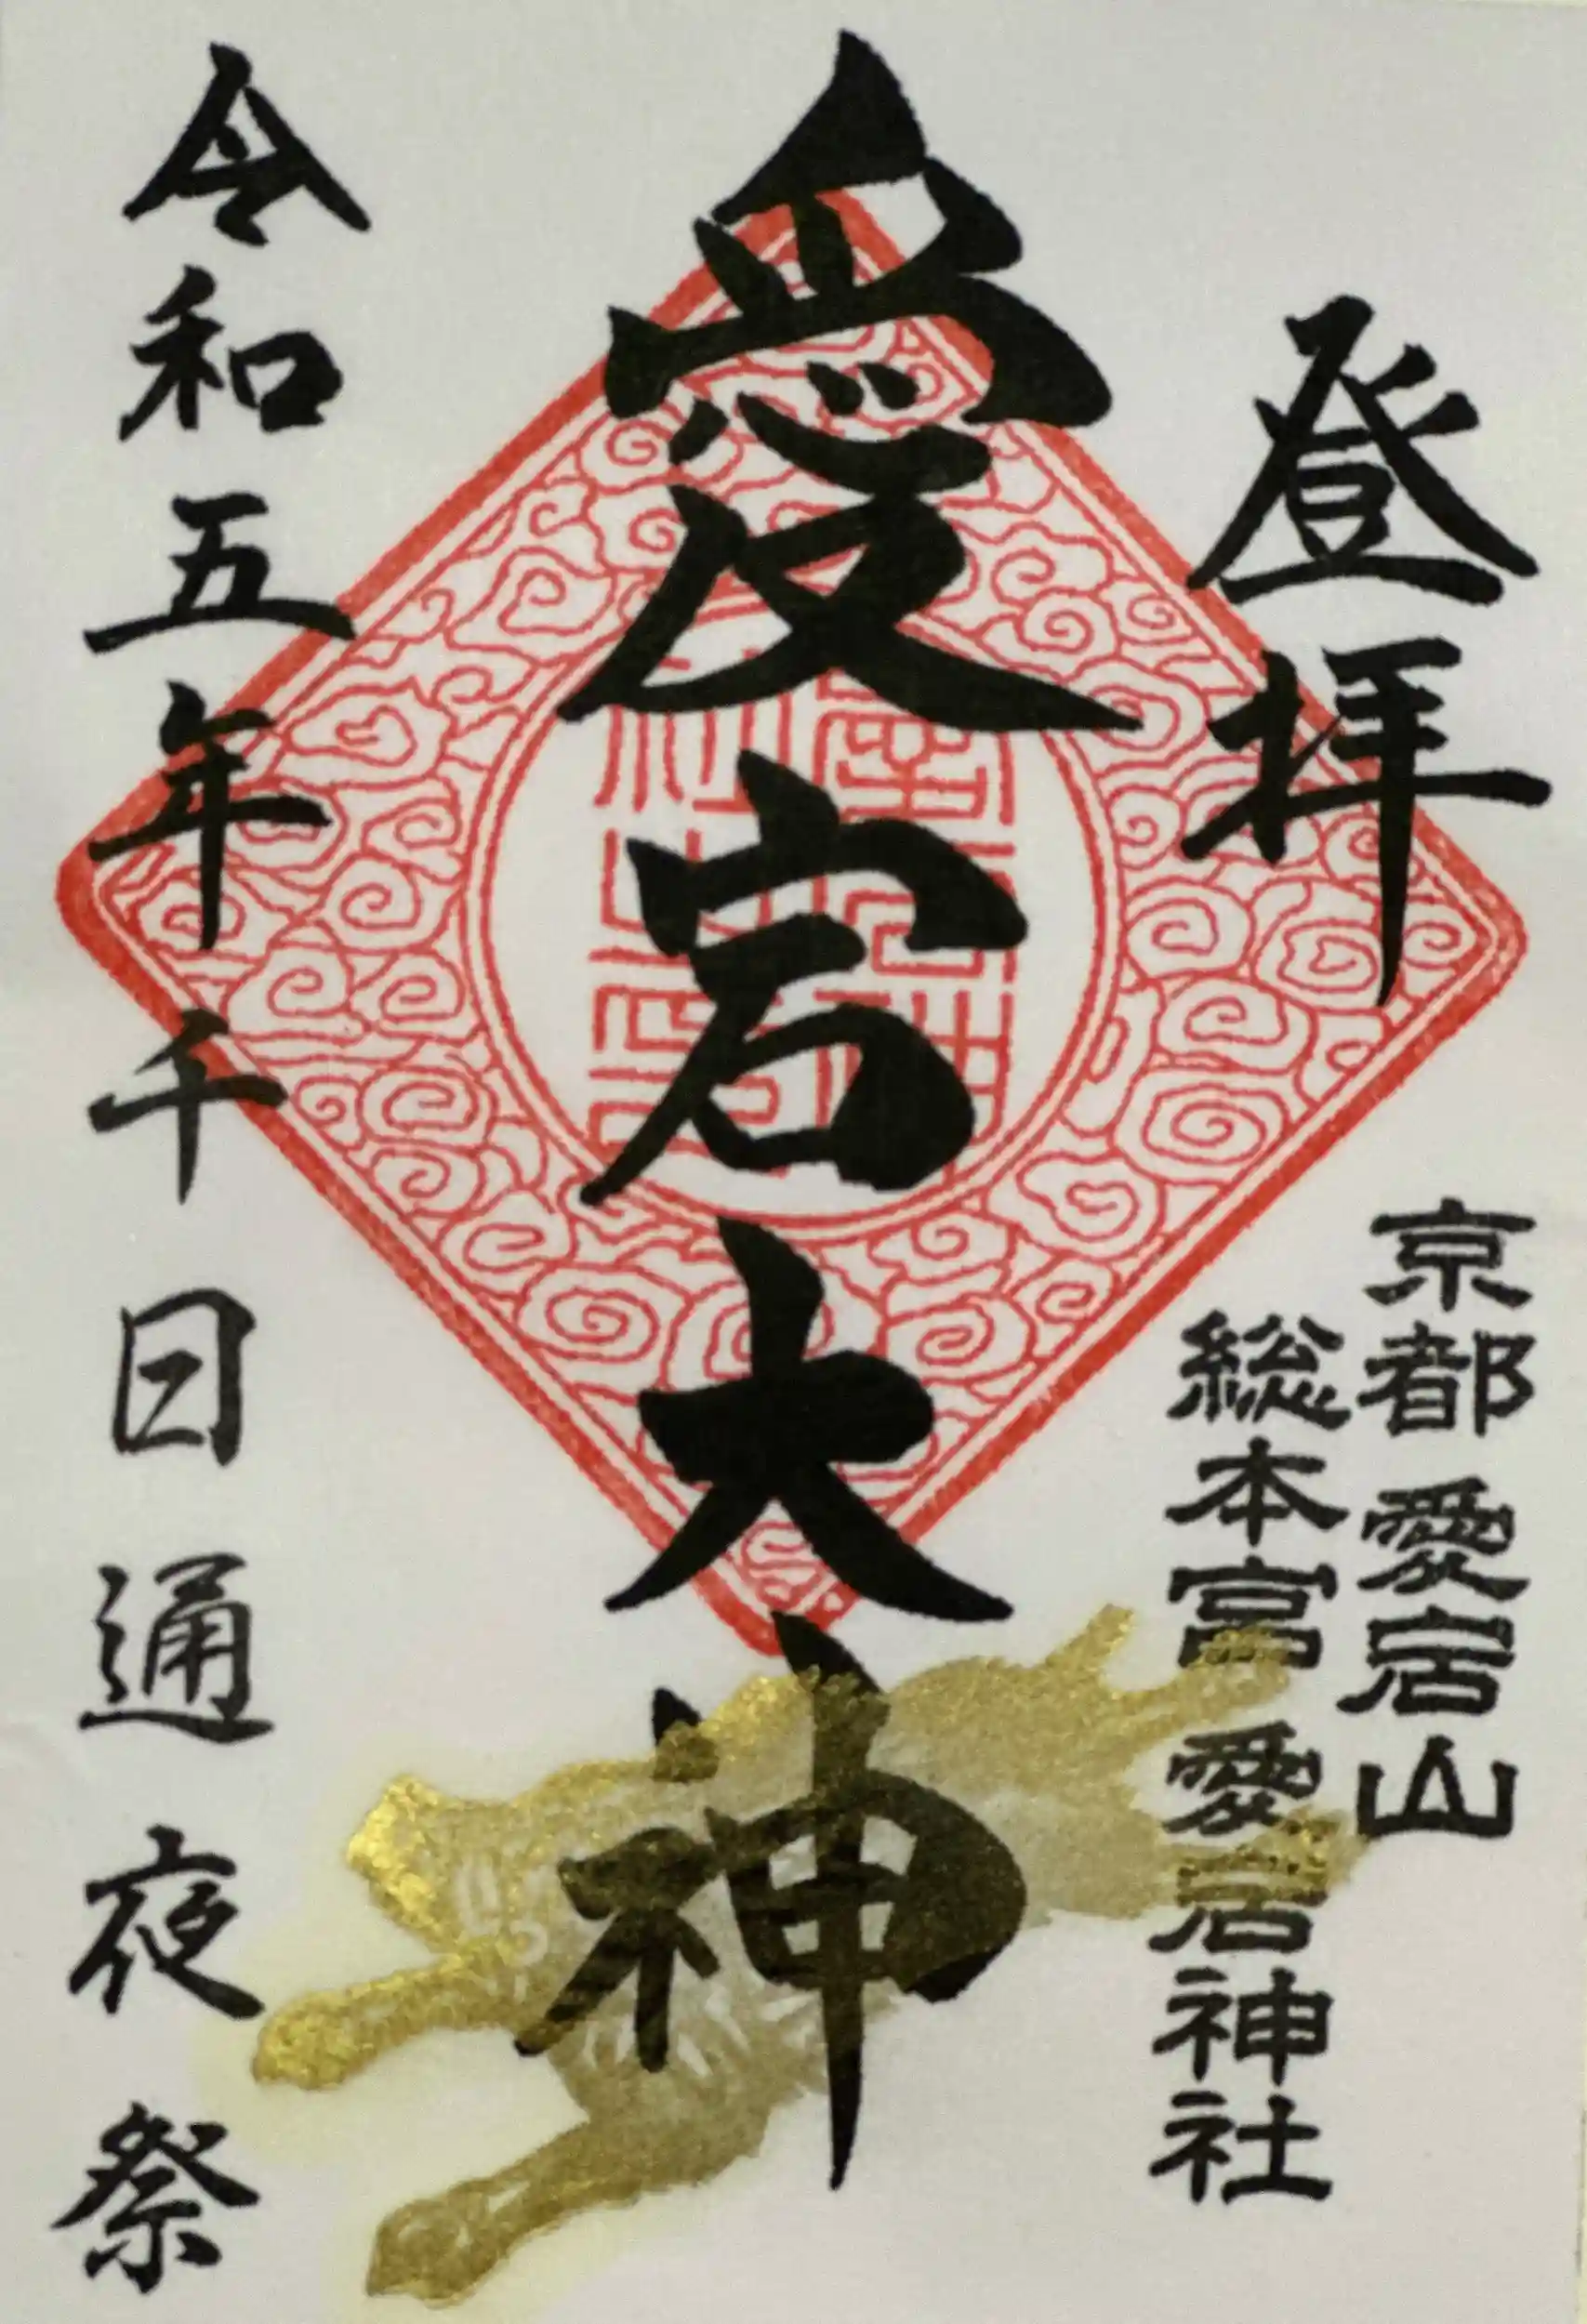 登拝
京都 愛宕山
総本宮 愛宕神社
愛宕大神
令和五年 千日通夜祭